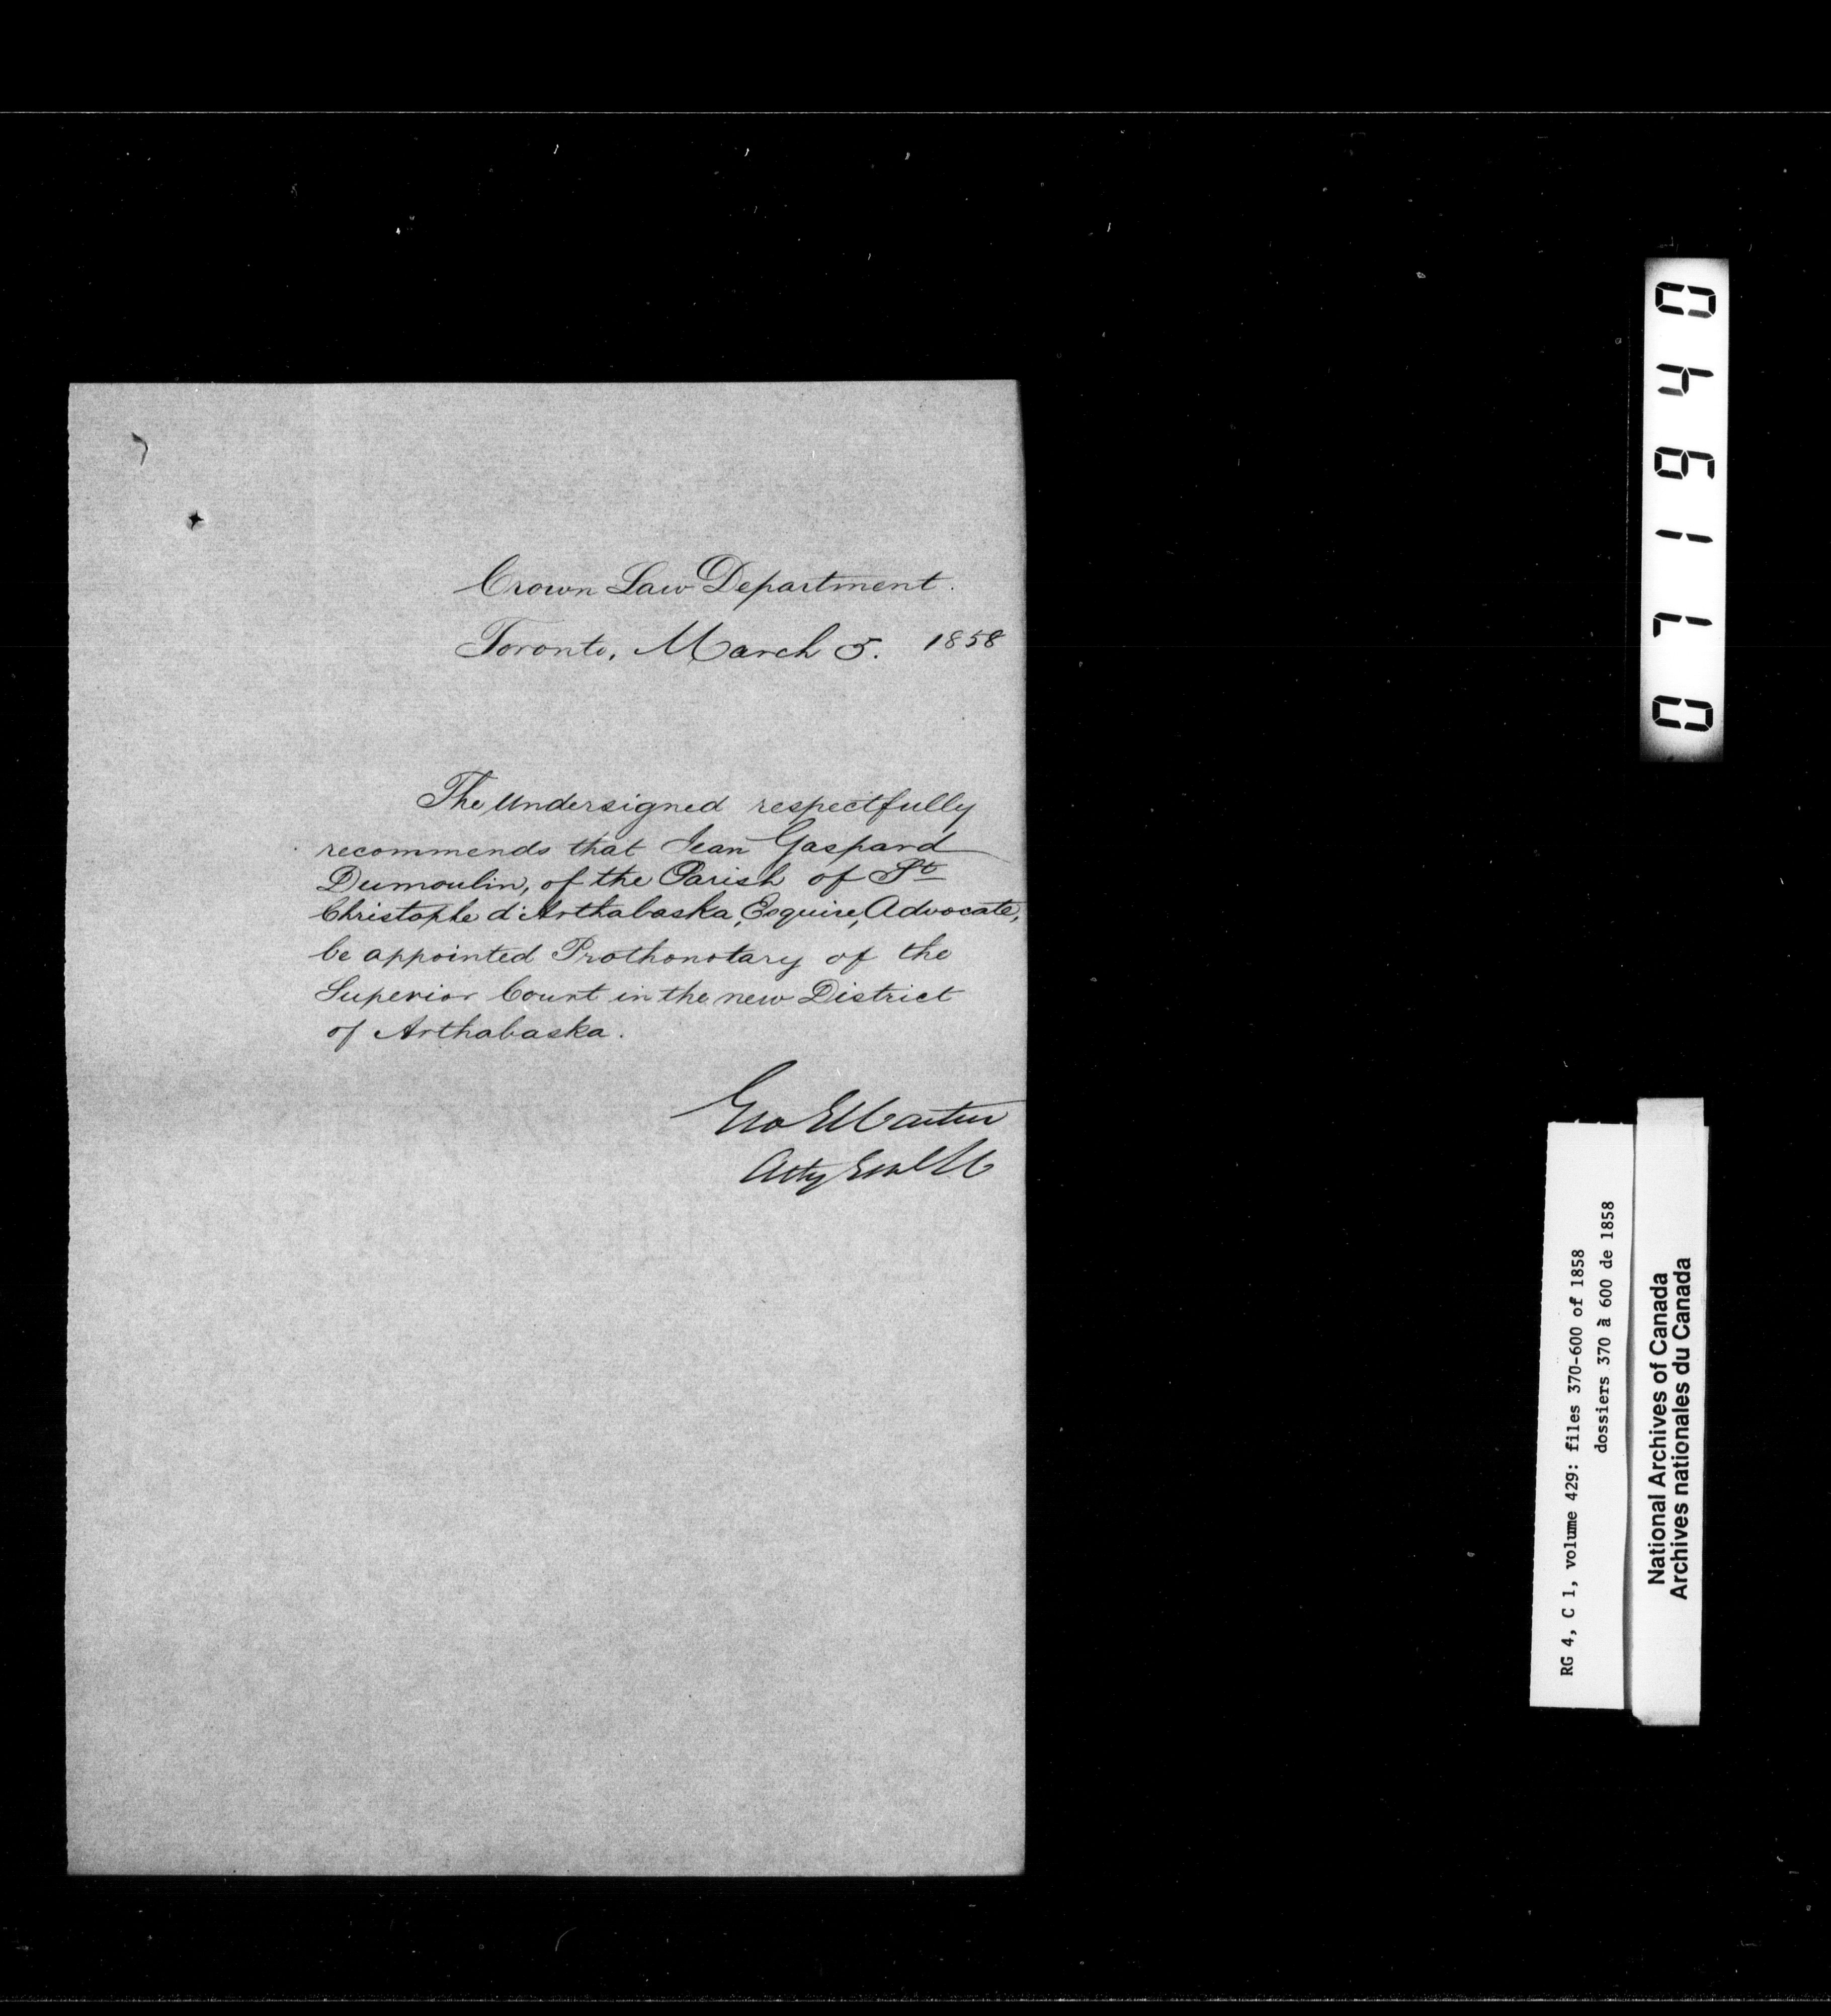 Crown Law Department.
Toronto, March 5. 1858
The Undersigned respectfully
recommends that Jean Gaspard
Dumoulin, of the Parish of St
Christophe d'Arthabaska, Esquire, Advocate,
be appointed Prothonotary of the
Superior Court in the new District
of Arthabaska.
Geo E Cartier
Atty Genl LC
071940
RG 4, C 1, volume 429: files 370-600 of 1858
dossiers 370 à 600 de 1858
National Archives of Canada
Archives nationales du Canada